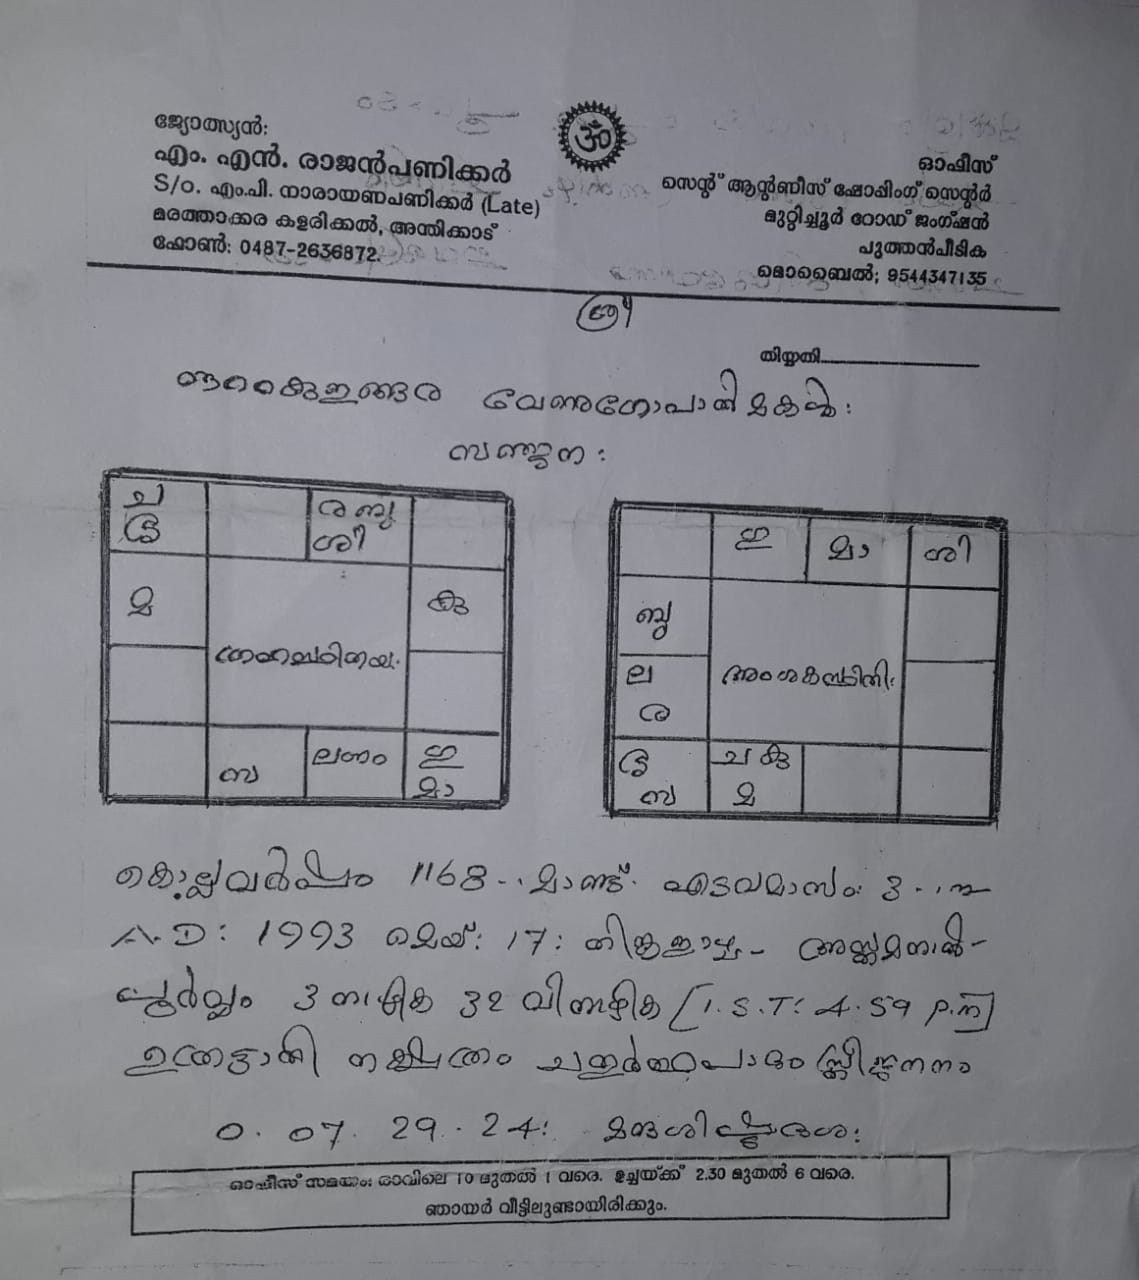 ജ്യോത്സ്യൻ:
എം. എൻ. രാജൻപണിക്കർ
S/o. എം.പി. നാരായണപണിക്കർ (Late)
മരത്താക്കര കളരിക്കൽ, അന്തിക്കാട്
ഫോൺ: 0487-2636872.
ॐ
ഓഫീസ്
സെന്റ് ആന്റണീസ് ഷോപ്പിംഗ് സെന്റർ
മുറ്റിച്ചൂർ റോഡ് ജംഗ്ഷൻ
പുത്തൻപീടിക
മൊബൈൽ; 9544347135
ശ്രീ
തിയ്യതി
വേണുഗോപാൽ മകൾ:
സഞ്ജന:
ച
ര ബു
ശി
മ
കു
ഗ്രഹസ്ഥിതി
സ
ലഗ്നം
ഗു
മാ
ഗു
മാ
ശി
ബു
ല
ര
അംശകസ്ഥിതി:
സ
ച കു
മ
കൊല്ലവർഷം 1168 മാണ്ട് എടവമാസം 3
A.D: 1993 മെയ്: 17: തിങ്കളാഴ്ച അസ്തമനാൽ-
പൂർവ്വം 3 നാഴിക 32 വിനാഴിക [I.S.T: 4.59 P.M]
ഉത്രട്ടാതി നക്ഷത്രം ചതുർത്ഥപാദം സ്ത്രീജനനം
0. 07. 29. 24: മന്ദശിഷ്ടദശ:
ഓഫീസ് സമയം: രാവിലെ 10 മുതൽ 1 വരെ. ഉച്ചയ്ക്ക് 2.30 മുതൽ 6 വരെ.
ഞായർ വീട്ടിലുണ്ടായിരിക്കും.